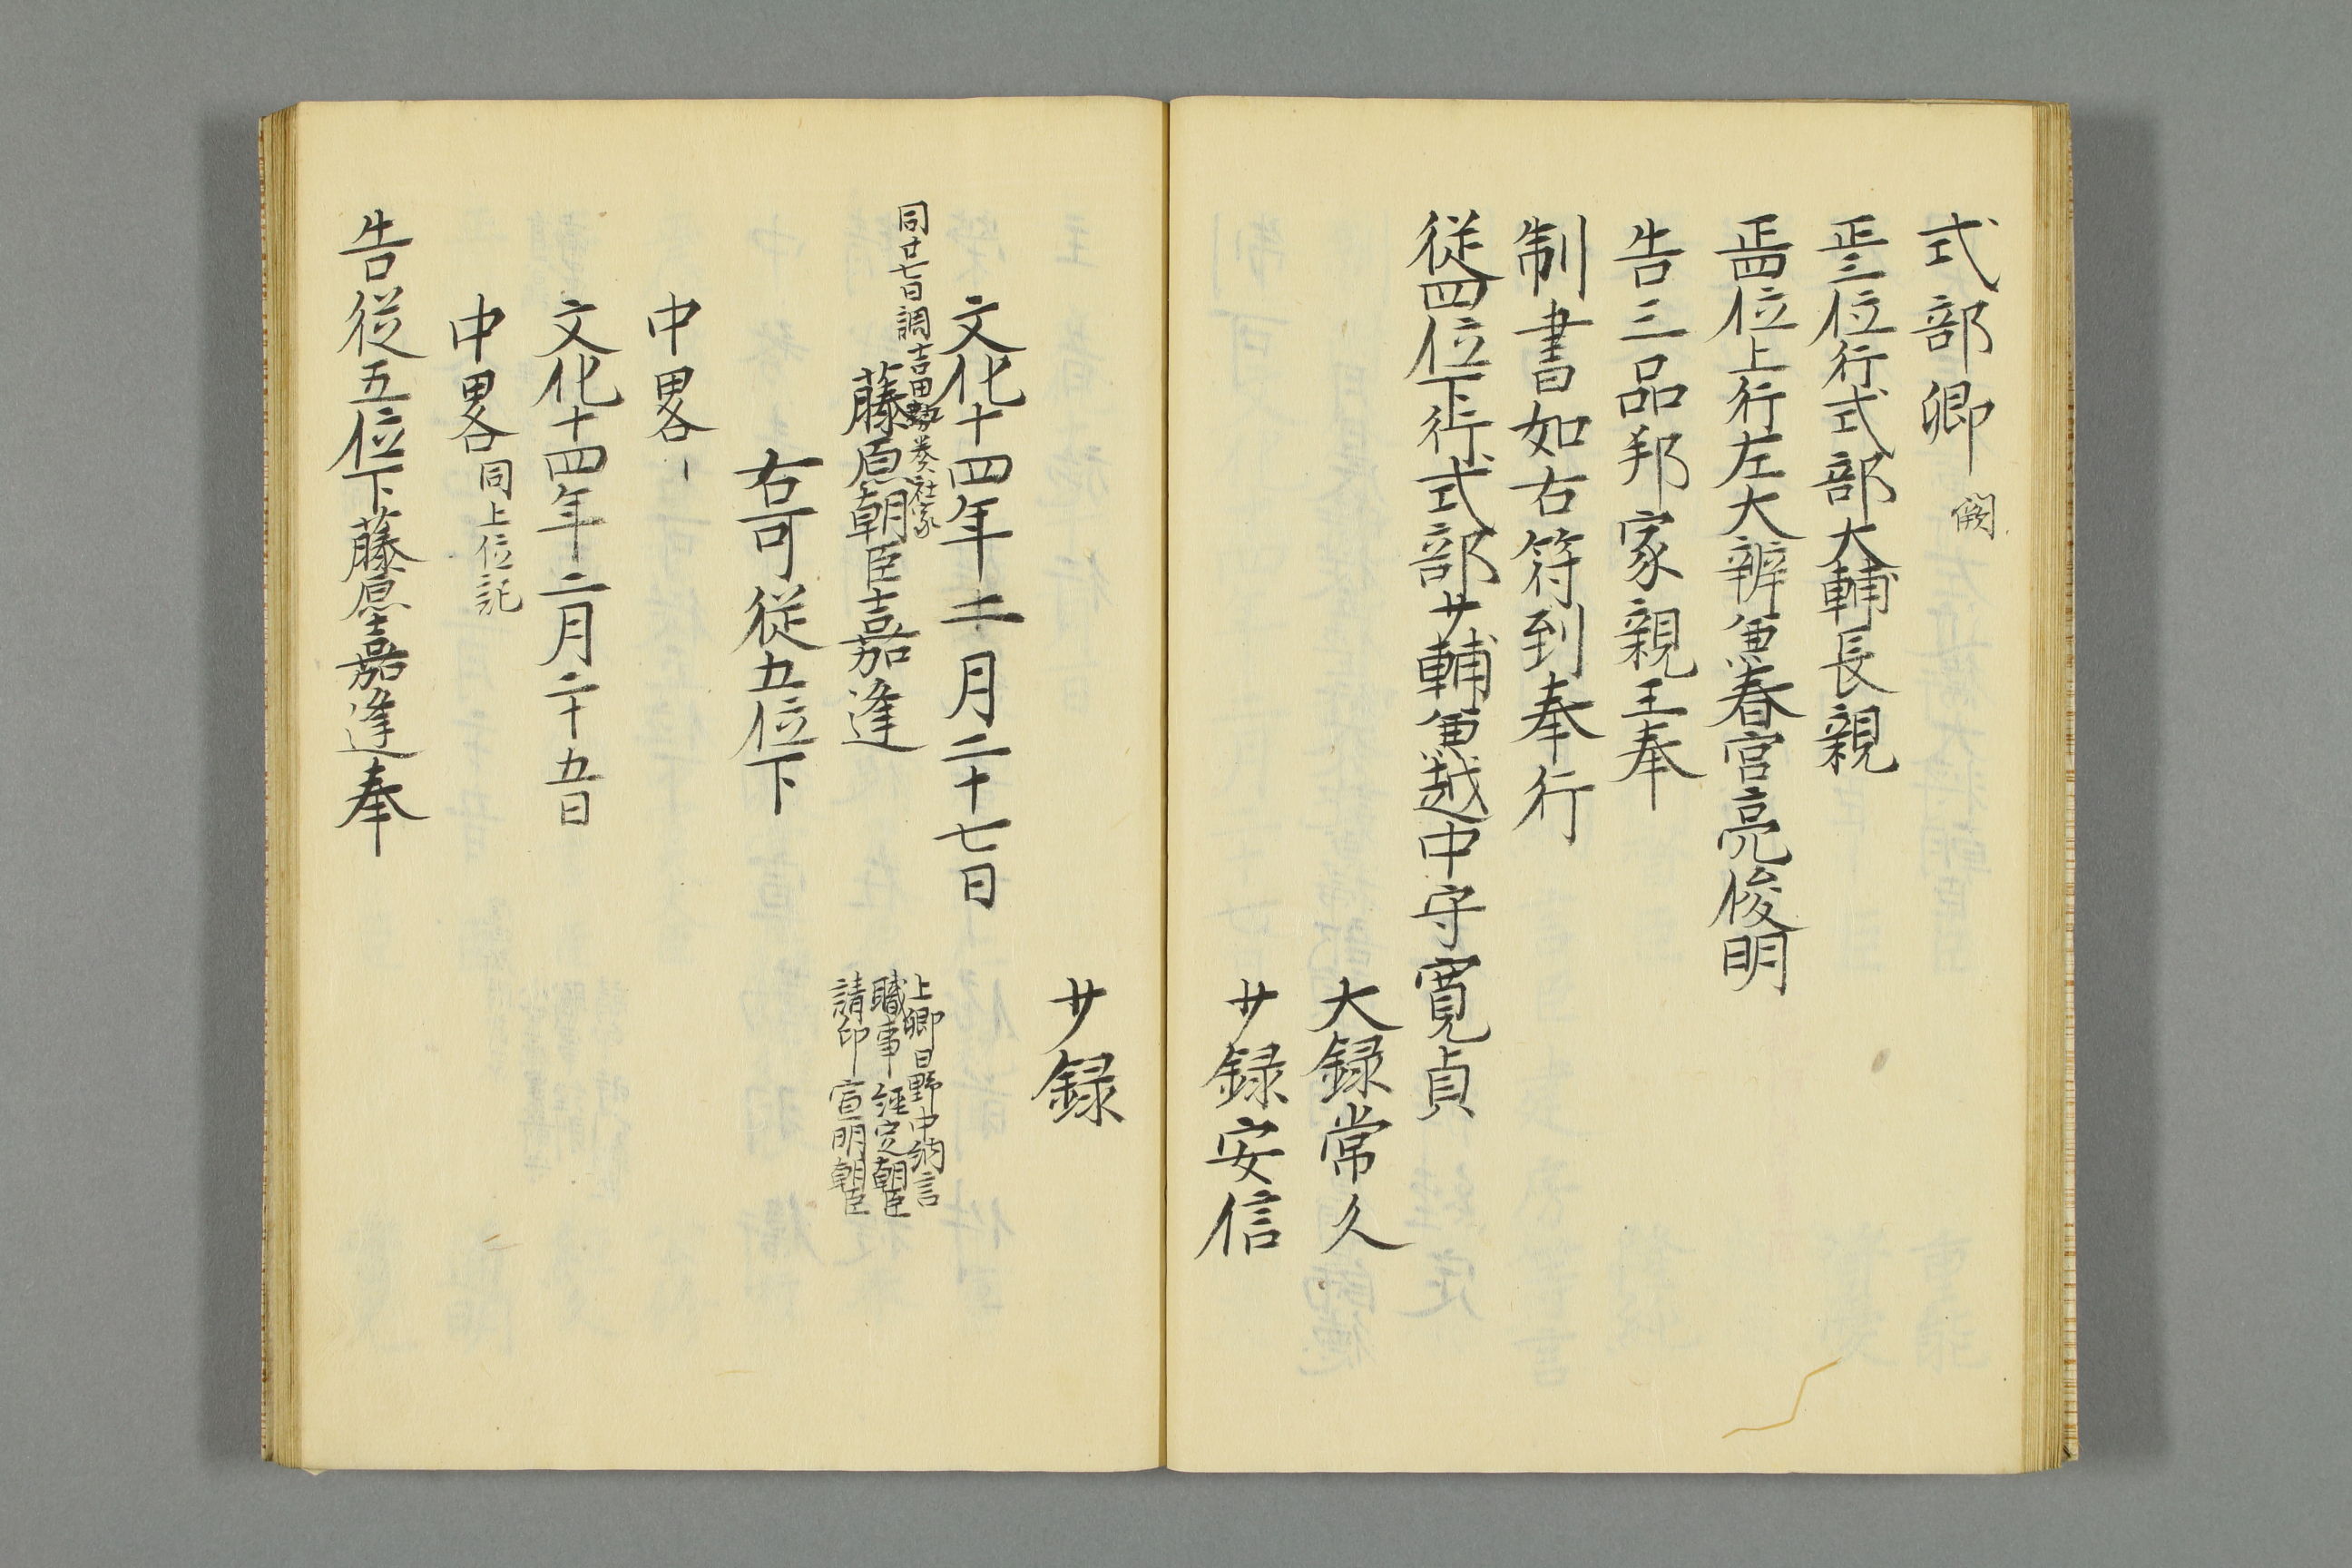 式部卿 闕
正三位行式部大輔長親
正四位上行左大辨兼春宮亮俊明
告三品邦家親王奉
制書如右符到奉行
従四位下行式部少輔兼越中守寛貞
大録常久
少録安信
少録
文化十四年二月二十七日
同廿七日調吉田執奏社家
藤原朝臣嘉逢
上卿日野中納言
職事 経定朝臣
請印 宣明朝臣
右可従五位下
中畧
文化十四年二月二十五日
中畧 同上位記
告従五位下藤原嘉逢奉